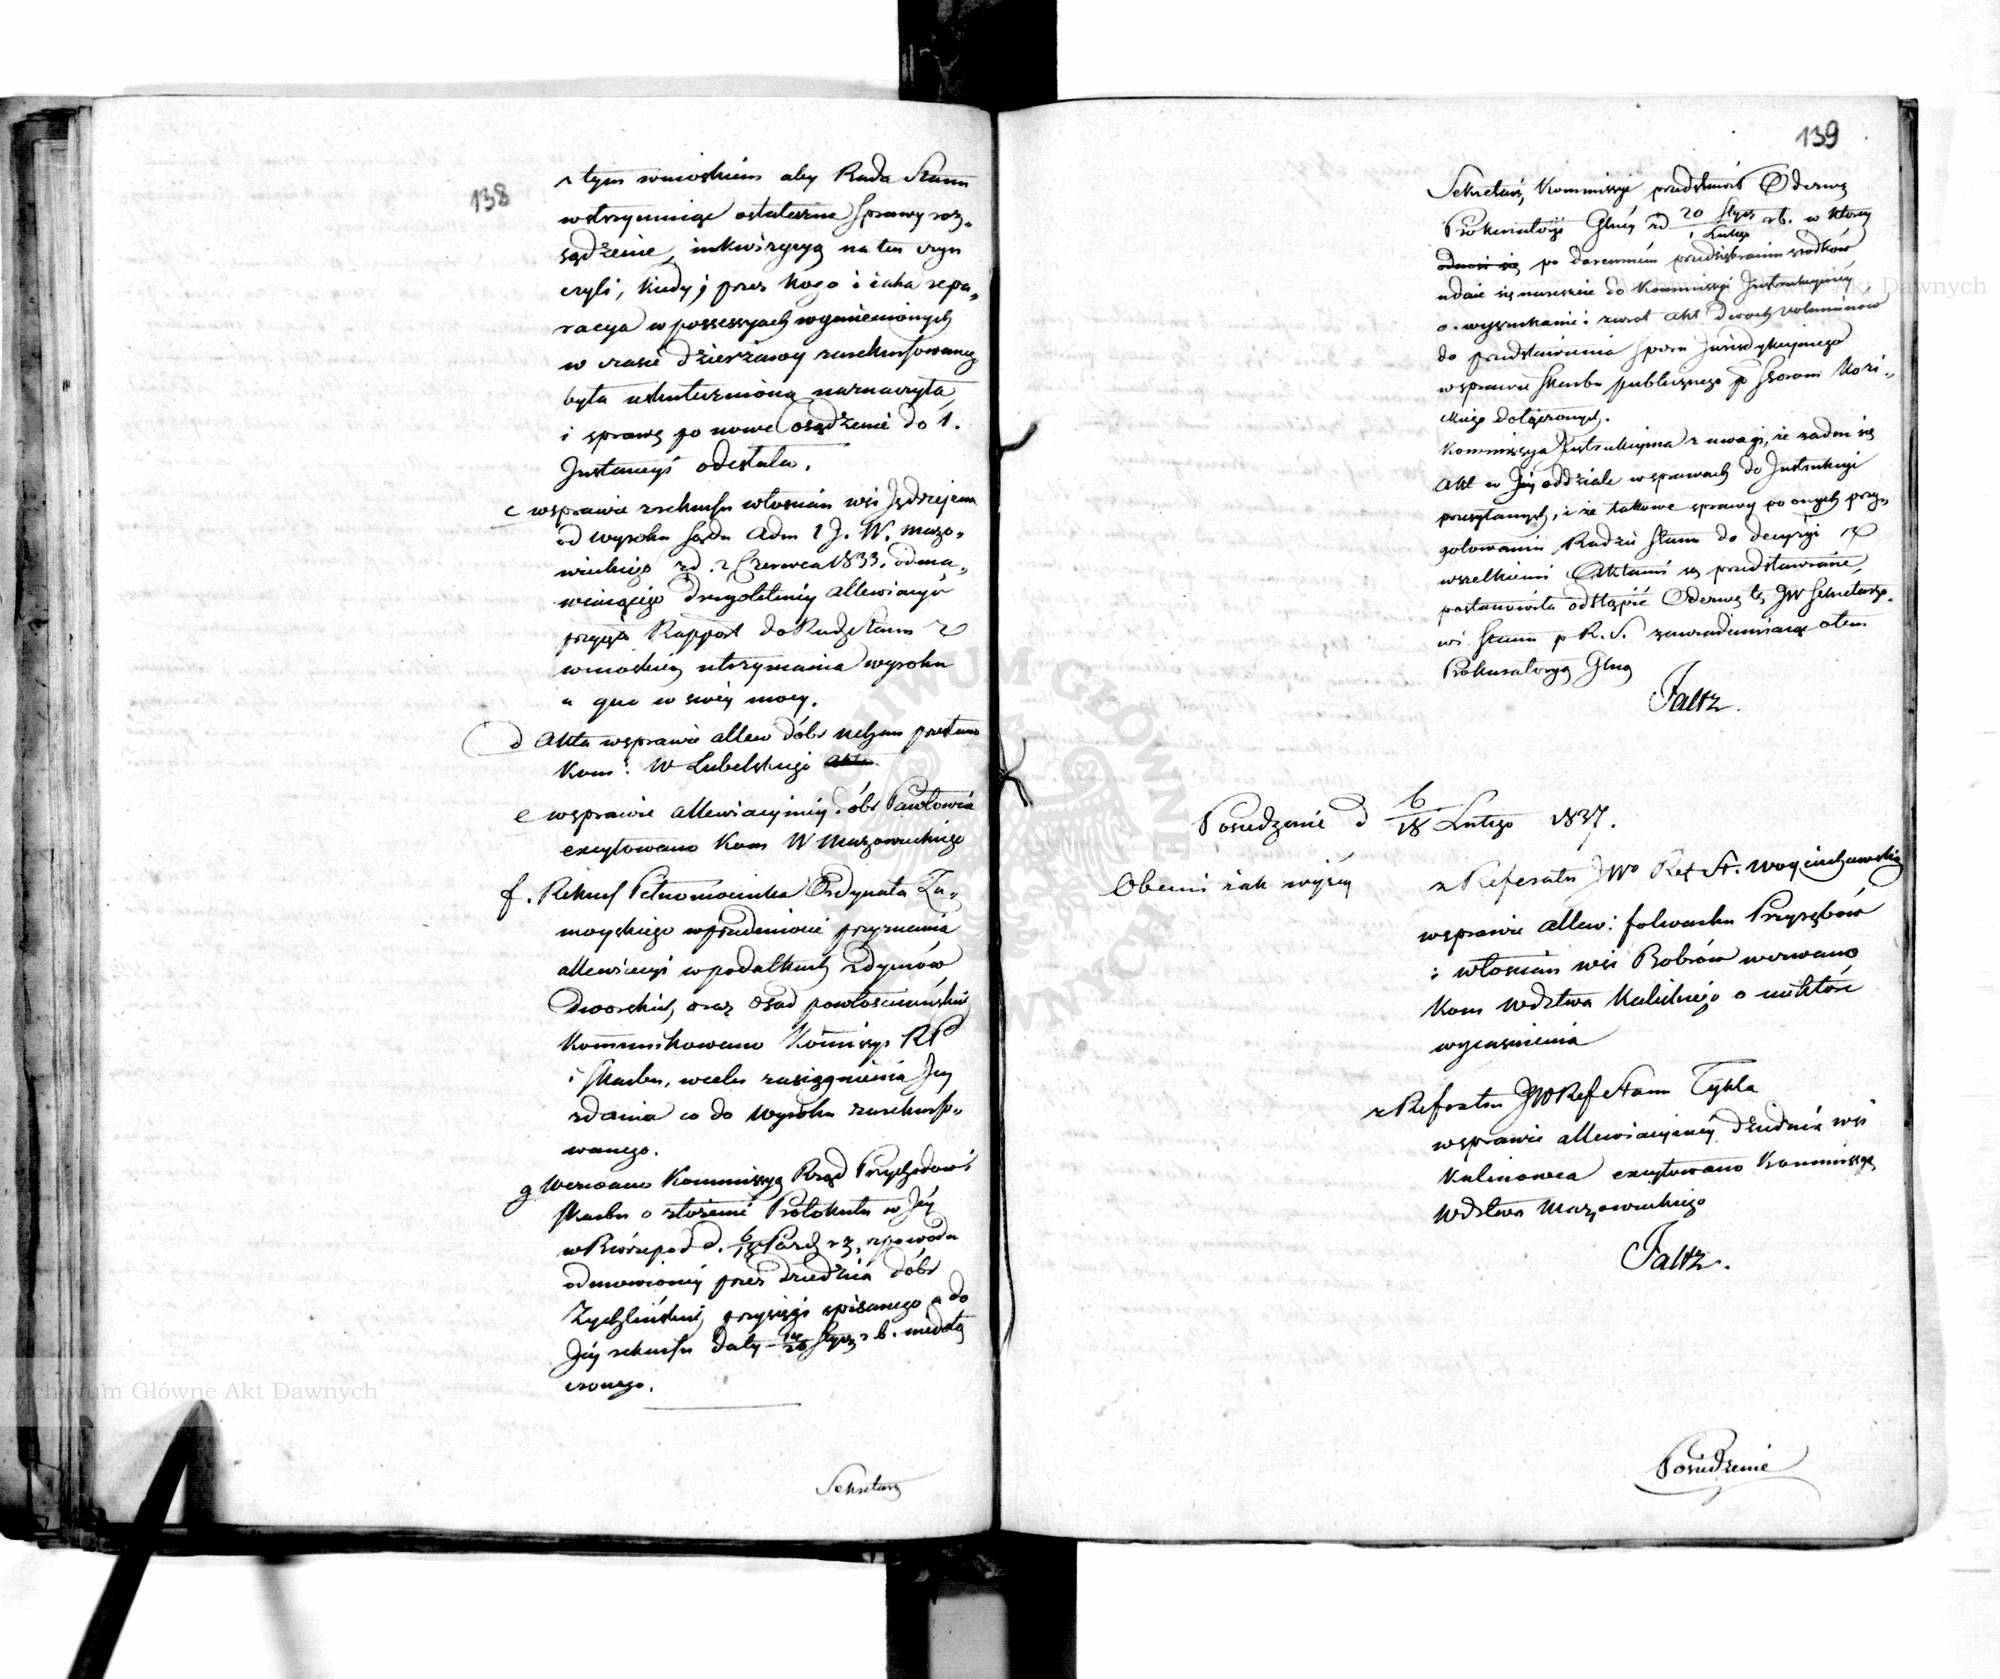 138
z tym wnioskiem aby Rada Stanu
wstrzymuiąc ostateczne sprawy roz„
sądzenie, inkwizycyą na ten czyn
czyli, kiedy, przez kogo i iaka repa„
racya w possessyach wymienionych
w czasie dzierżawy zarekursowaney
była uskutecznioną naznaczyła,
i sprawę po nowe osądzenie do 1.
Instancyi odesłała.
c w sprawie rekursu włościan wsi Jędrzejewa
od wyroku Sądu Adm 1 J. W. Mazo„
wieckiego z d. 2 Czerwca 1833. odma„
wiaiącego Drugoletniey allewiacyi
przyięto Rapport do Rady Stanu z
wnioskiem utrzymania wyroku
a quo w swey mocy.
d Akta w sprawie allew dóbr
Kom: W Lubelskiego
e w sprawie allewiacyiney dóbr Pawłowice
excytowano Kom W Mazowieckiego
f. Rekurs Pełnomocnika Ordynata Za„
moyskiego w przedmiocie przyznania
allewiacyi w podatkach z dymów
Dworskich, oraz osad powłościańskich
kommunikowano Kommissyi RP
i Skarbu, w celu zasiągnienia Jey
zdania co do wyroku zarekurso„
wanego.
g Wezwano Kommissyą Rząd Przychodów i
Skarbu o złożenie Protokułu w Jey
w Biórze pod d. 6/18 Paźd r z, z powodu
odmowioney przez dziedzica dóbr
Zychlińskiey przysięgi spisanego a do
Jey rekursu daty 14/26 Stycz r b. niedołą
czonego.
Sekretarz
139
Sekretarz Kommissyi przedstawił Odezwę
Prokuratoryi Głney z d 20 Stycz / 1 Lutego r b. w którey
odnosi się po daremnem przedsiębraniu środków
udaie się nareszcie do Kommissyi Instrukcyiney
o wyszukanie i zwrot akt dwóch voluminów
do przedstawienia sporu Jurisdykcyinego
w sprawie Skarbu publicznego p Storom Kozi„
ckiego dołączonych.
Kommissya Instrukcyina z uwagi, że żadne się
akt w Jey oddziale w sprawach do Instrukcyi
przesyłanych, i że takowe sprawy po onych przy„
gotowaniu Radzie Stanu do decyzyi z
wszelkiemi Aktami są przedstawiane,
postanowiła odstąpić Odezwę tę JW Sekretarzo„
wi Stanu p R. S. zawiadamiaiąc o tem
Prokuratoryą Głną
Faltz.
Posiedzenie d 6/18 Lutego 1837.
Obecni iak wyżey
z Referatu JWo Ref St. Woyciechowskiego
w sprawie allew: folwarku Przyrębów
i włościan wsi Bobrów wezwano
Kom Wdztwa Kaliskiego o niektóre
wyiasnienia
z Referatu JWRef Stanu Tykla
w sprawie allewiacyiney dziedzica wsi
Kalinowca excytowano Kommissyą
Wdztwa Mazowieckiego
Faltz.
Posiedzenie
Archiwum Główne Akt Dawnych
Archiwum Główne Akt Dawnych